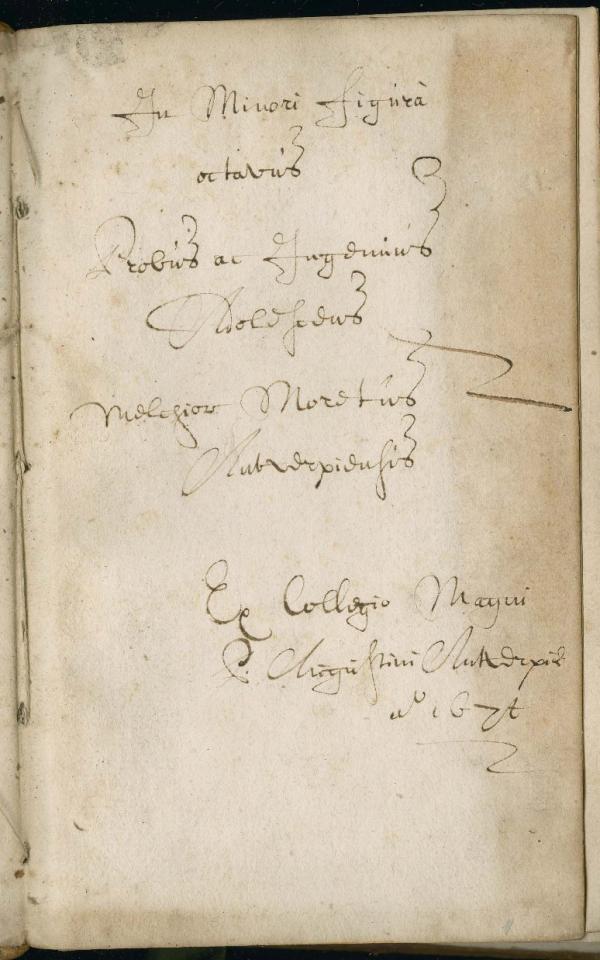 In Minori figura
octavus
Probus ac Ingenuus
Adolescens
Melchior Moretus
Antverpiensis
Ex Collegio Magni
P. Augustini Antverpiæ
aº 1674